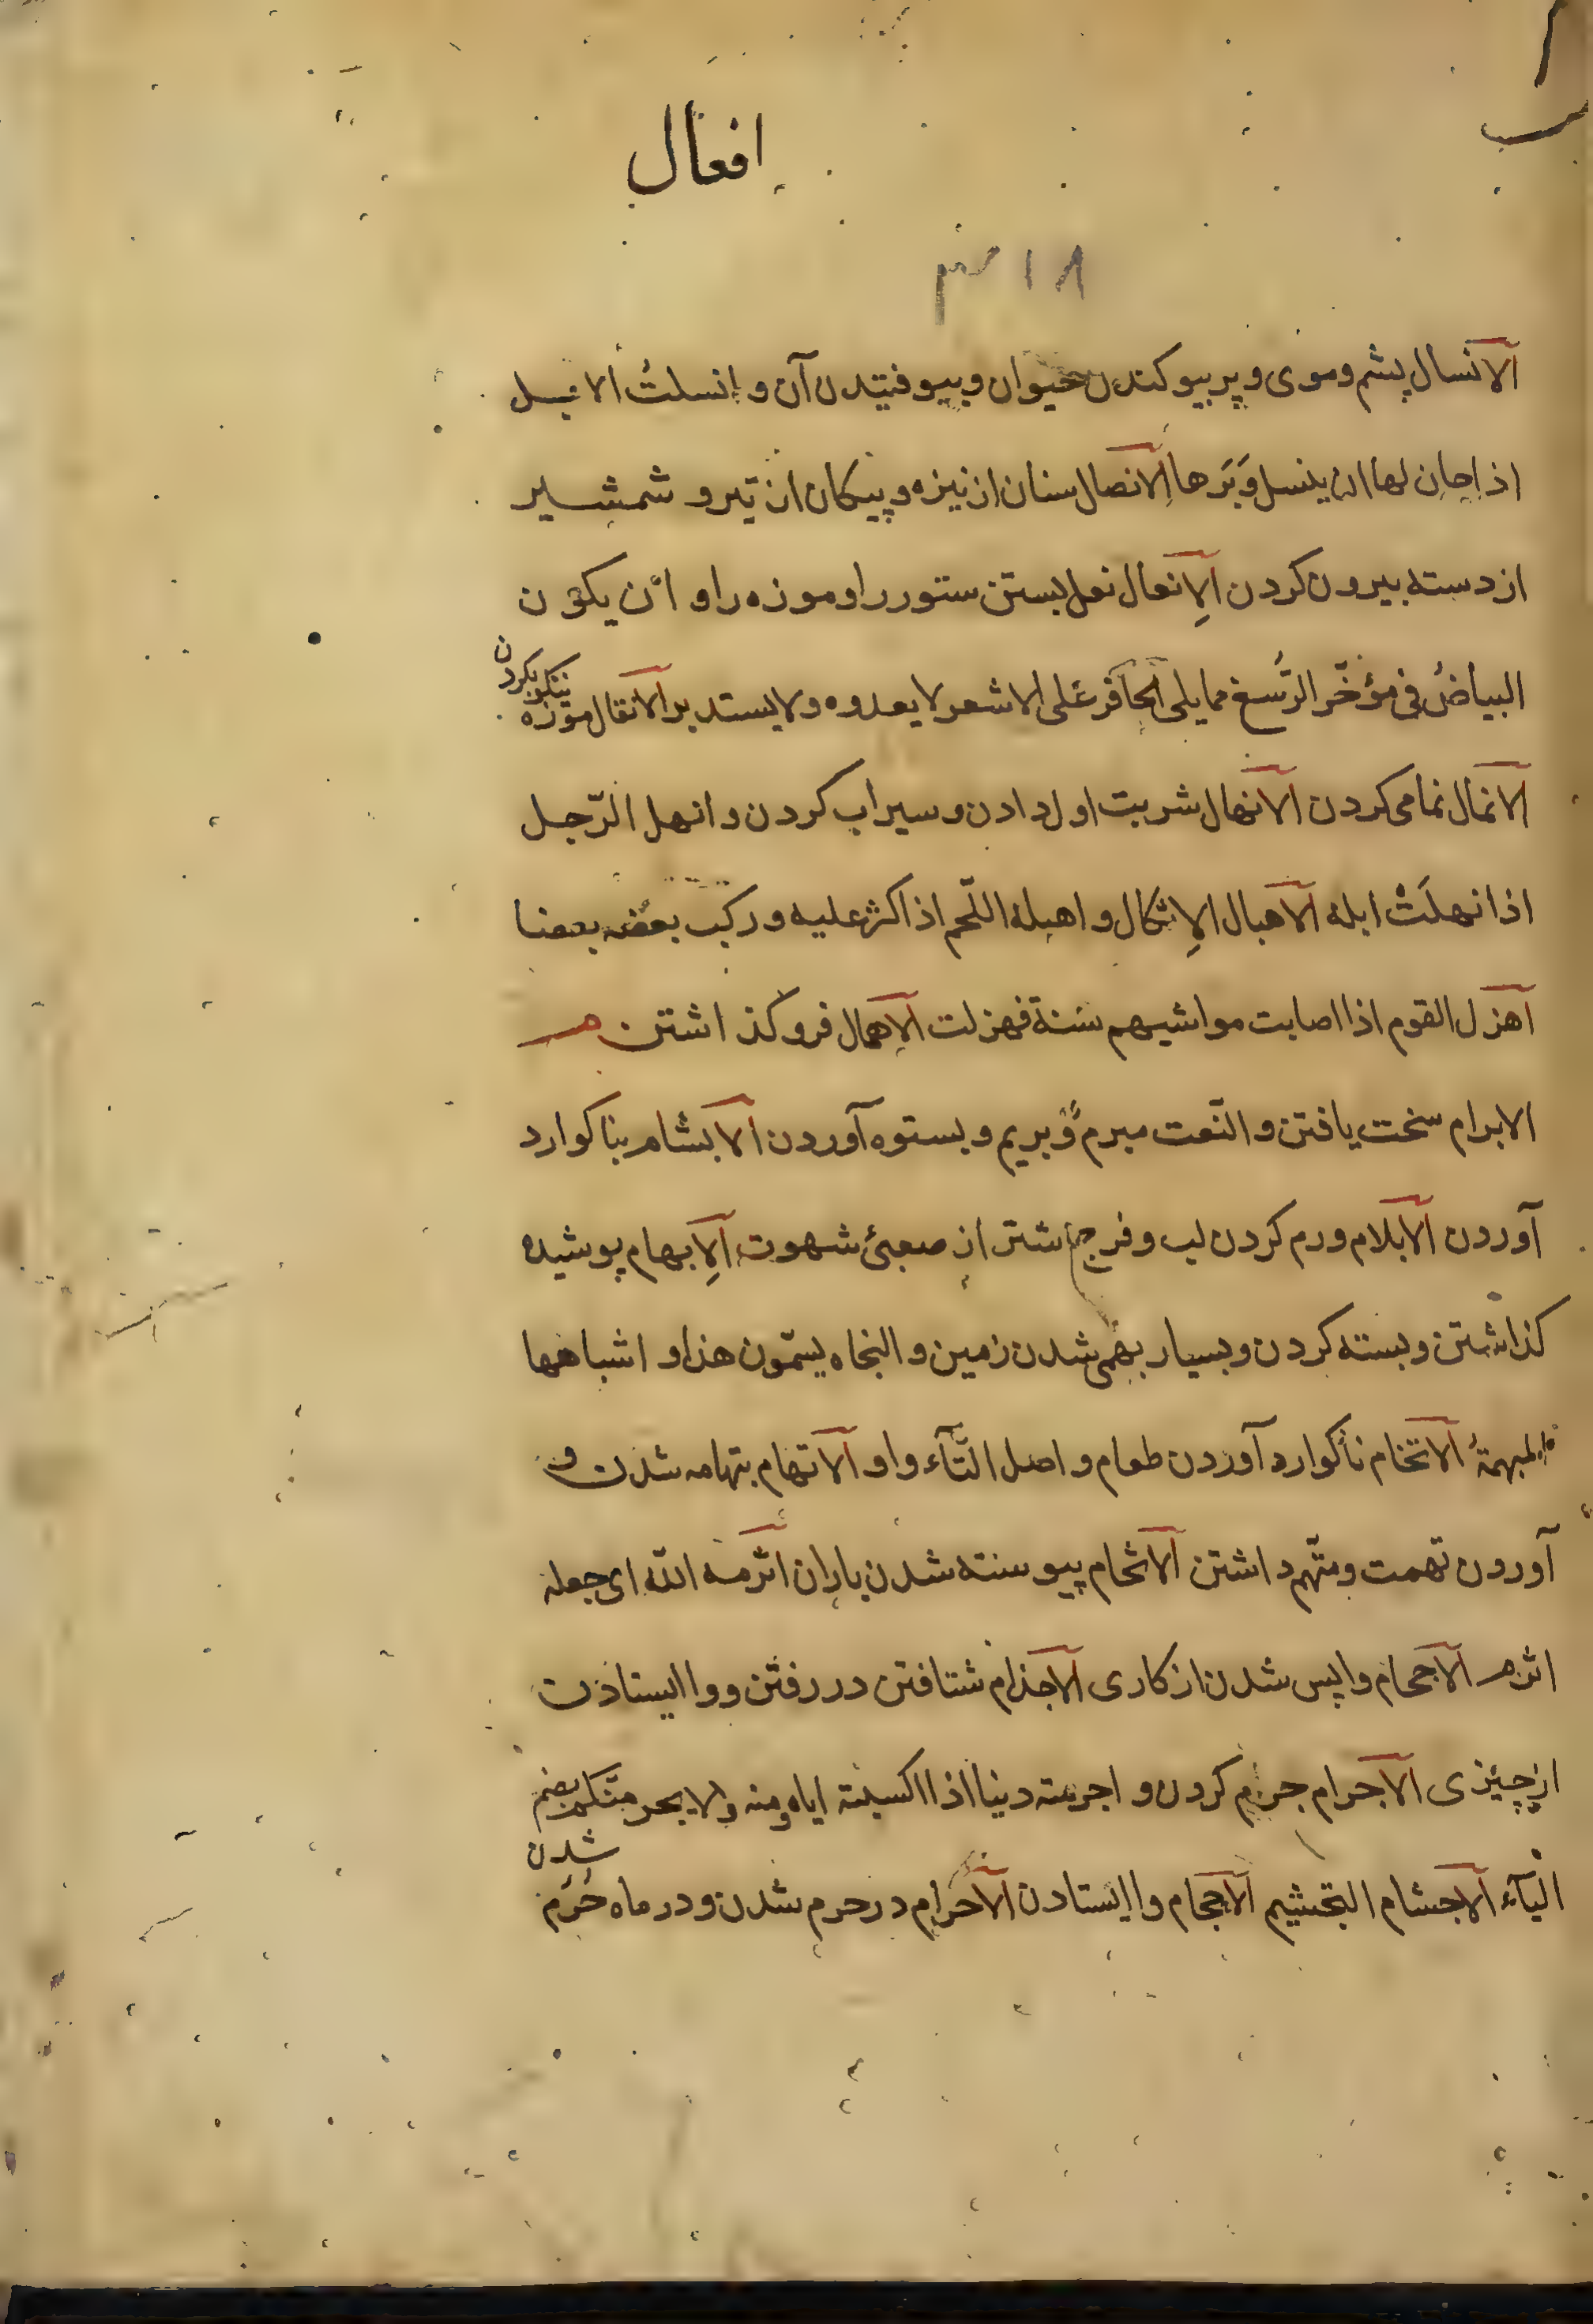 افعال
الانسال پشم وموی و پر بیوکندن حیوان و بیوفتیدن آن و انسلت الابل
اذا حان لها ان ینسل وَبَرها الانصال سنان از نیزه و پیکان از تیر و شمشیر
از دسته بیرون کردن الاِنعال نعل بستن ستور را و موزه را و ان یکون
البیاضُ فی مؤخّر الرُّسغ مما یلی الحافر علی الاشعر لا یعدوه ولا یستدیر الانقال موزه نیکو بکردن
الانمال نمامی کردن الانهال شربت اول دادن و سیراب کردن و انهل الرّجل
اذا نهلَتْ ابله الاهبال الاِثکال و اهبله اللّحم اذا کثر علیه و رکب بعضه بعضا
اهزل القوم اذا اصابت مواشیهم سَنة فهزلت الاِهمال فرو کذاشتن م
الابرام سخت یافتن و النّعت مبرمٌ وبریم و بستوه آوردن الابشام بناکوارد
آوردن الابلام ورم کردن لب و فرج اشتر از صعبئ شهوت الاِبهام پوشیده
کذاشتن و بسته کردن و بسیار بهمی شدن زمین و النحاه یسمّون هذا و اشباهها
المبهمةُ الاتخام ناکوارد آوردن طعام و اصل التّآء واو الاتهام بتهامه شدن و
آوردن تهمت و متّهم داشتن الاثجام پیوسته شدن باران اثرمه اللّه ای جعله
اثرم الاحجام واپس شدن از کاری الاجذام شتافتن در رفتن و وا ایستاذن
از چیزی الاجرام جرم کردن و اجرمته دینا اذا اکسبته ایاه ومنه ولا یجرمنّکم بضم
الیآء الاجشام التجشیم الاحجام وا ایستادن الاحرام در حرم شدن و در ماه حرم شدن